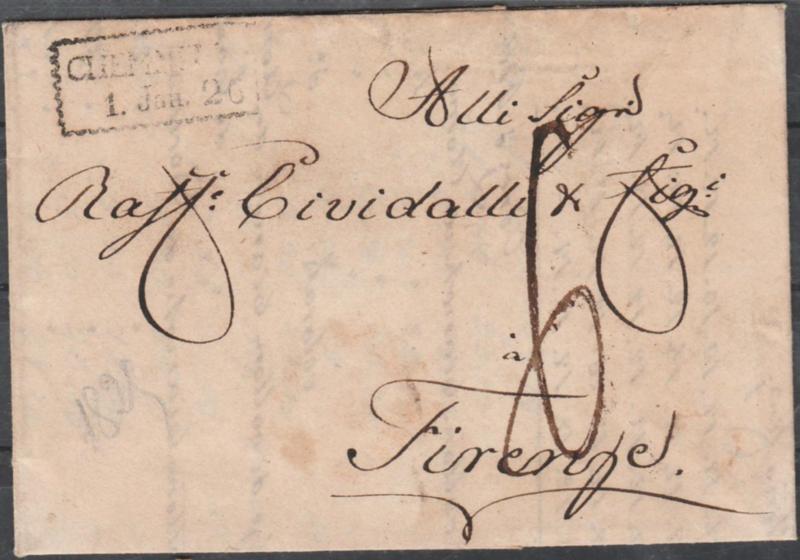 CHEMNITZ
1. Jan. 26
Alli Sigri
Raffe. Cividalli & Figi.
à
Firenze.